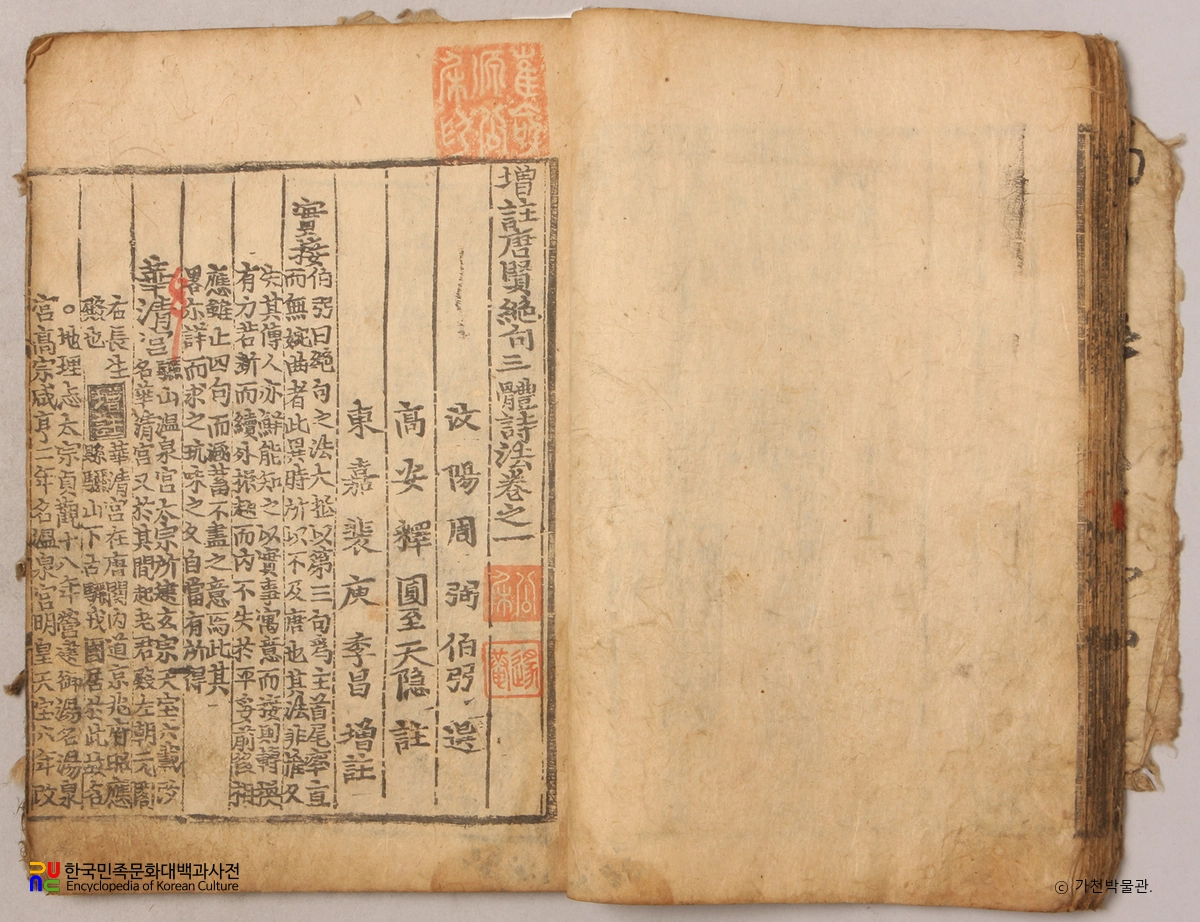 增註唐賢絕句三體詩法卷之一
汶陽周弼伯弜選
高安釋圓至天隱註
東嘉裴庾季昌增註
實接
伯弜曰絕句之法大抵以第三句爲主首尾率直
而無婉曲者此異時所以不及唐也其法非惟久
失其傳人亦鮮能知之以實事寓意而接則轉換
有力若斷而續外振起而內不失於平妥前後相
應雖止四句而涵蓄不盡之意焉此其
畧尓詳而求之玩味之久自當有所得
華清宮
驪山温泉宮太宗所建玄宗天宝六載改
名華清宮又於其間起老君殿左朝元閣
右長生
殿也
增註
華清宮在唐関內道京兆府昭應
縣驪山下古驪戎國居於此故名
○地理志太宗貞觀十八年營建御湯名湯泉
宮高宗咸亨二年名温泉宮明皇天宝六年改
한국민족문화대백과사전
Encyclopedia of Korean Culture
ⓒ 가천박물관.